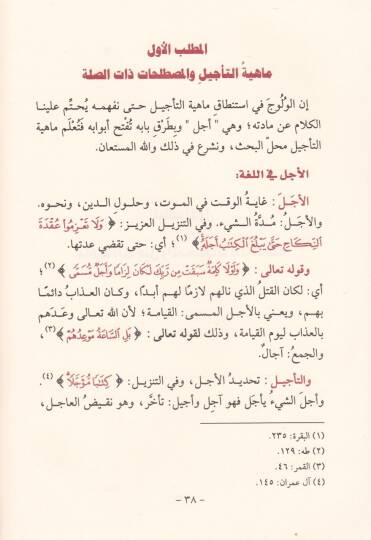 المطلب الأول
ماهيةُ التأجيل والمصطلحات ذات الصلة
إن الوُلُوجَ في استنطاقِ ماهية التأجيل حتى نفهمه يُحتِّم علينا
الكلام عن مادته؛ وهي " أجل " وبِطَرْقِ بابه تُفْتح أبوابه فتُعْلَم ماهية
التأجيل محلّ البحث، ونشرع في ذلك والله المستعان.
الأجل في اللغة:
الأجَلَ : غايةُ الوقت في الموت، وحلولِ الدين، ونحوه.
والأجلُ: مُدَّةُ الشيء. وفي التنزيل العزيز: ﴿ وَلَا تَعْزِمُوا عُقْدَةَ
النِّكَاحِ حَتَّىٰ يَبْلُغَ الْكِتَابُ أَجَلَهُ ﴾ (١)؛ أي: حتى تقضي عدتها.
وقوله تعالى : ﴿ وَلَوْلَا كَلِمَةٌ سَبَقَتْ مِن رَّبِّكَ لَكَانَ لِزَامًا وَأَجَلٌ مُّسَمًّى ﴾ (٢)؛
أي: لكان القتلُ الذي نالهم لازمًا لهم أبدًا، وكان العذابُ دائمًا
بهم، ويعني بالأجل المسمى: القيامة؛ لأن الله تعالى وعَدَهم
بالعذاب ليوم القيامة، وذلك لقوله تعالى : ﴿ بَلِ السَّاعَةُ مَوْعِدُهُمْ ﴾ (٣)،
والجمعُ: آجالٌ.
والتأجيل : تحديدُ الأجل، وفي التنزيل: ﴿ كِتَابًا مُّؤَجَّلًا ﴾ (٤).
وأجلَ الشيءُ يأجَل فهو آجِل وأجيل: تأخَّر، وهو نقيضُ العاجل،
(١) البقرة: ٢٣٥.
(٢) طه: ١٢٩.
(٣) القمر: ٤٦.
(٤) آل عمران: ١٤٥.
- ٣٨ -